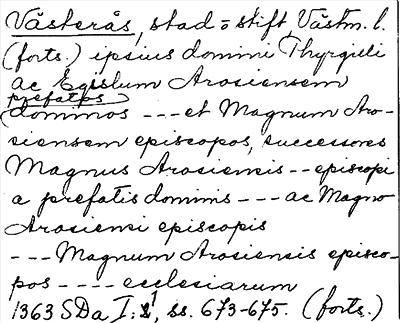 Västerås, stad o stift, Västm. l.
(forts.) ipsius domini Thyrgilli
ac Egislum Arosiensem
prefatos
dominos --- et Magnum Aro-
siensem episcopos, successores
Magnus Arosiensis -- episcopi
a prefatis dominis --- ac Magno
Arosiensi episcopis
--- Magnum Arosiensis episco-
pos ---- ecclesiarum
1363 SDa I:1, ss. 673-675. (forts.)